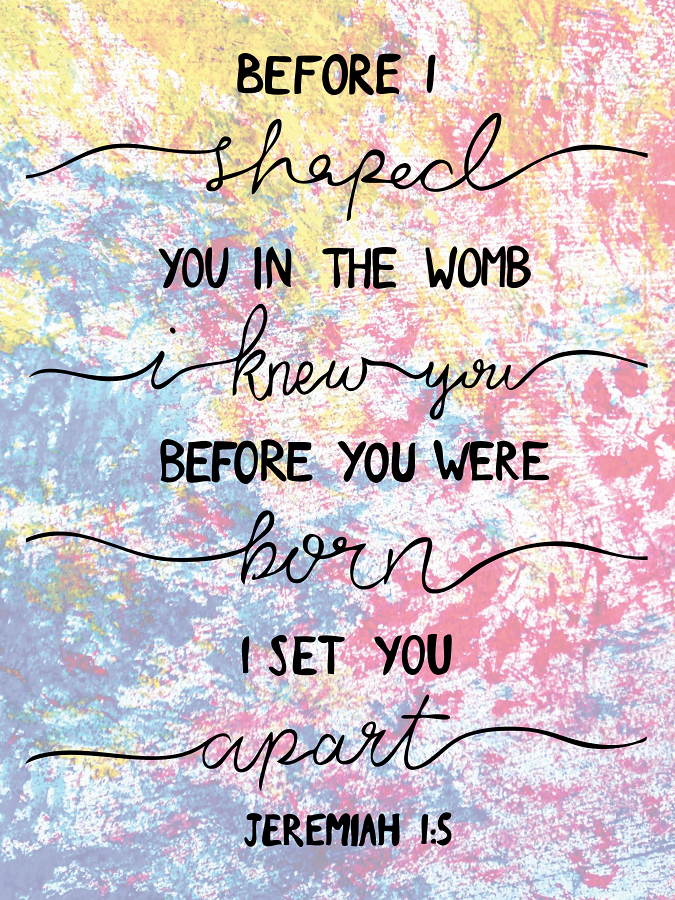 BEFORE I
shaped
YOU IN THE WOMB
i knew you
BEFORE YOU WERE
born
I SET YOU
apart
JEREMIAH 1:5